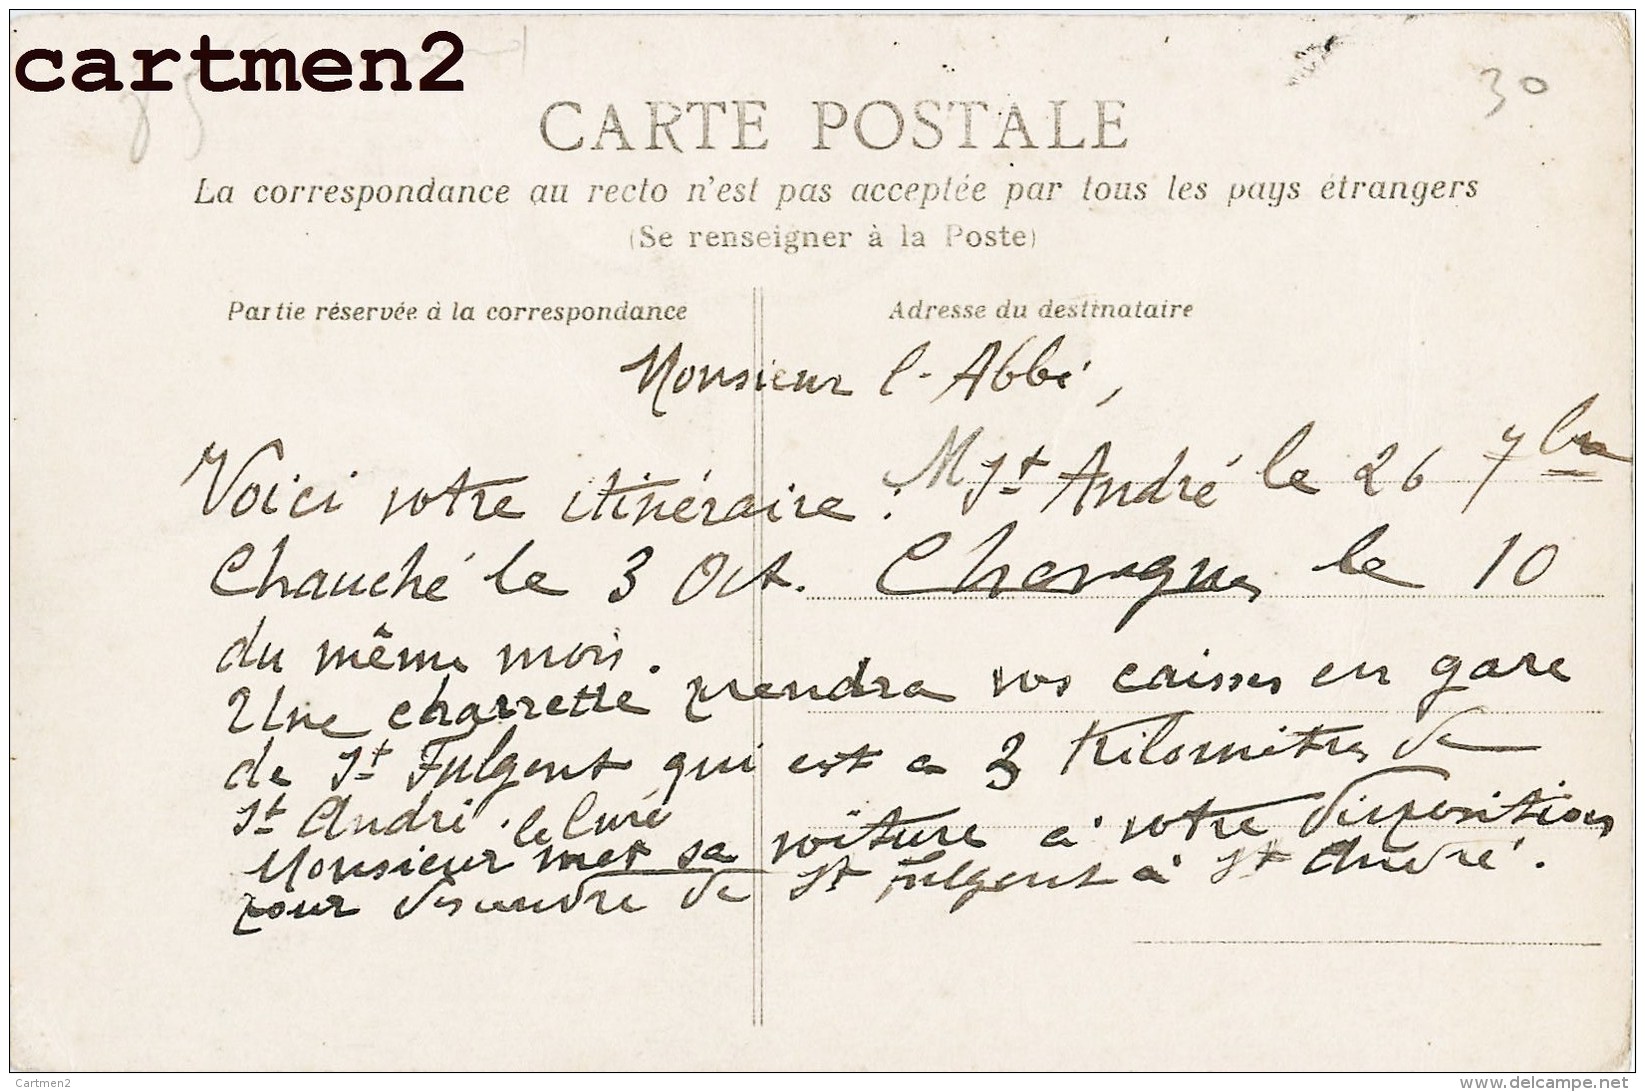 cartmen2
85
30
CARTE POSTALE
La correspondance au recto n'est pas acceptée par tous les pays étrangers
(Se renseigner à la Poste)
Partie réservée à la correspondance
Adresse du destinataire
Monsieur l-Abbé,
Voici votre itinéraire : St André le 26 7bre
Chauché le 3 Oct. Chavagnes le 10
du même mois.
Une charrette prendra vos caisses en gare
de St Fulgent qui est a 3 Kilomètres de
St André. le Curé
Monsieur met sa voiture à votre disposition
pour descendre de St Fulgent à St André.
Cartmen2
www.delcampe.net